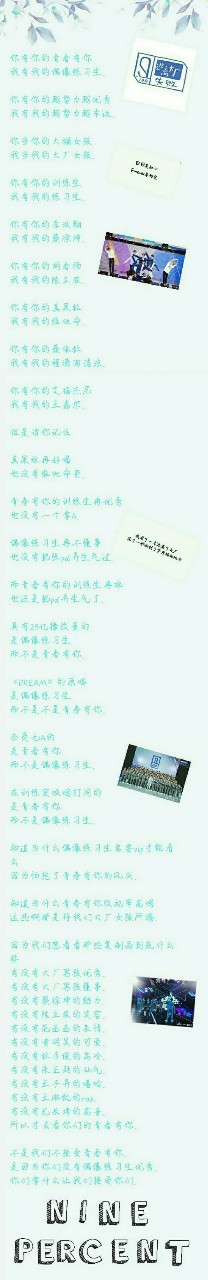 你有你的青春有你
我有我的偶像练习生.
你有你的越努力越优秀
我有我的越努力越幸运.
你当你的大铺女孩
我当我的大厂女孩.
你有你的训练生
我有我的练习生.
你有你的李汶翰
我有我的蔡徐坤.
我有我的陈立农.
你有你的真果粒
我有我的维他命.
你有你的蔡依林
我有我的程潇周洁琼.
你有你的艾福杰尼
我有我的王嘉尔.
但是请你记住
真果粒再好喝
也没有维他命多.
青春有你的训练生再优秀
也没有一个李A.
偶像练习生再不懂事
也没有把张pd弄生气过.
而青春有你的训练生再
也还是把pd弄生气了.
具有29亿播放量的
是偶像练习生
而不是青春有你.
《DREAM》的原唱
是偶像练习生
而不是不是青春有你.
全员无A的
是青春有你
而不是偶像练习生.
在训练室喊姐打闹的
是青春有你
而不是偶像练习生.
知道为什么偶像练习生需要vip才能看
么
因为怕抢了青春有你的风头.
知道为什么青春有你收视率高吗
这些啊都是拜我们大厂女孩所赐.
因为我们想看看那些复制品到底什么
样
有没有大厂男孩优秀.
有没有大厂男孩懂事.
有没有蔡徐坤的魅力.
有没有陈立农的笑容.
有没有范丞丞的表情.
有没有黄明昊的可爱.
有没有林彦俊的高冷.
有没有朱正廷的仙气.
有没有王子异的嘻哈.
有没有王琳凯的rap.
有没有尤长靖的高音.
所以才去看你们的青春有你.
不是我们不接受青春有你.
是因为你们没有偶像练习生优秀.
你们拿什么让我们接受你们.
NINE
PERCENT